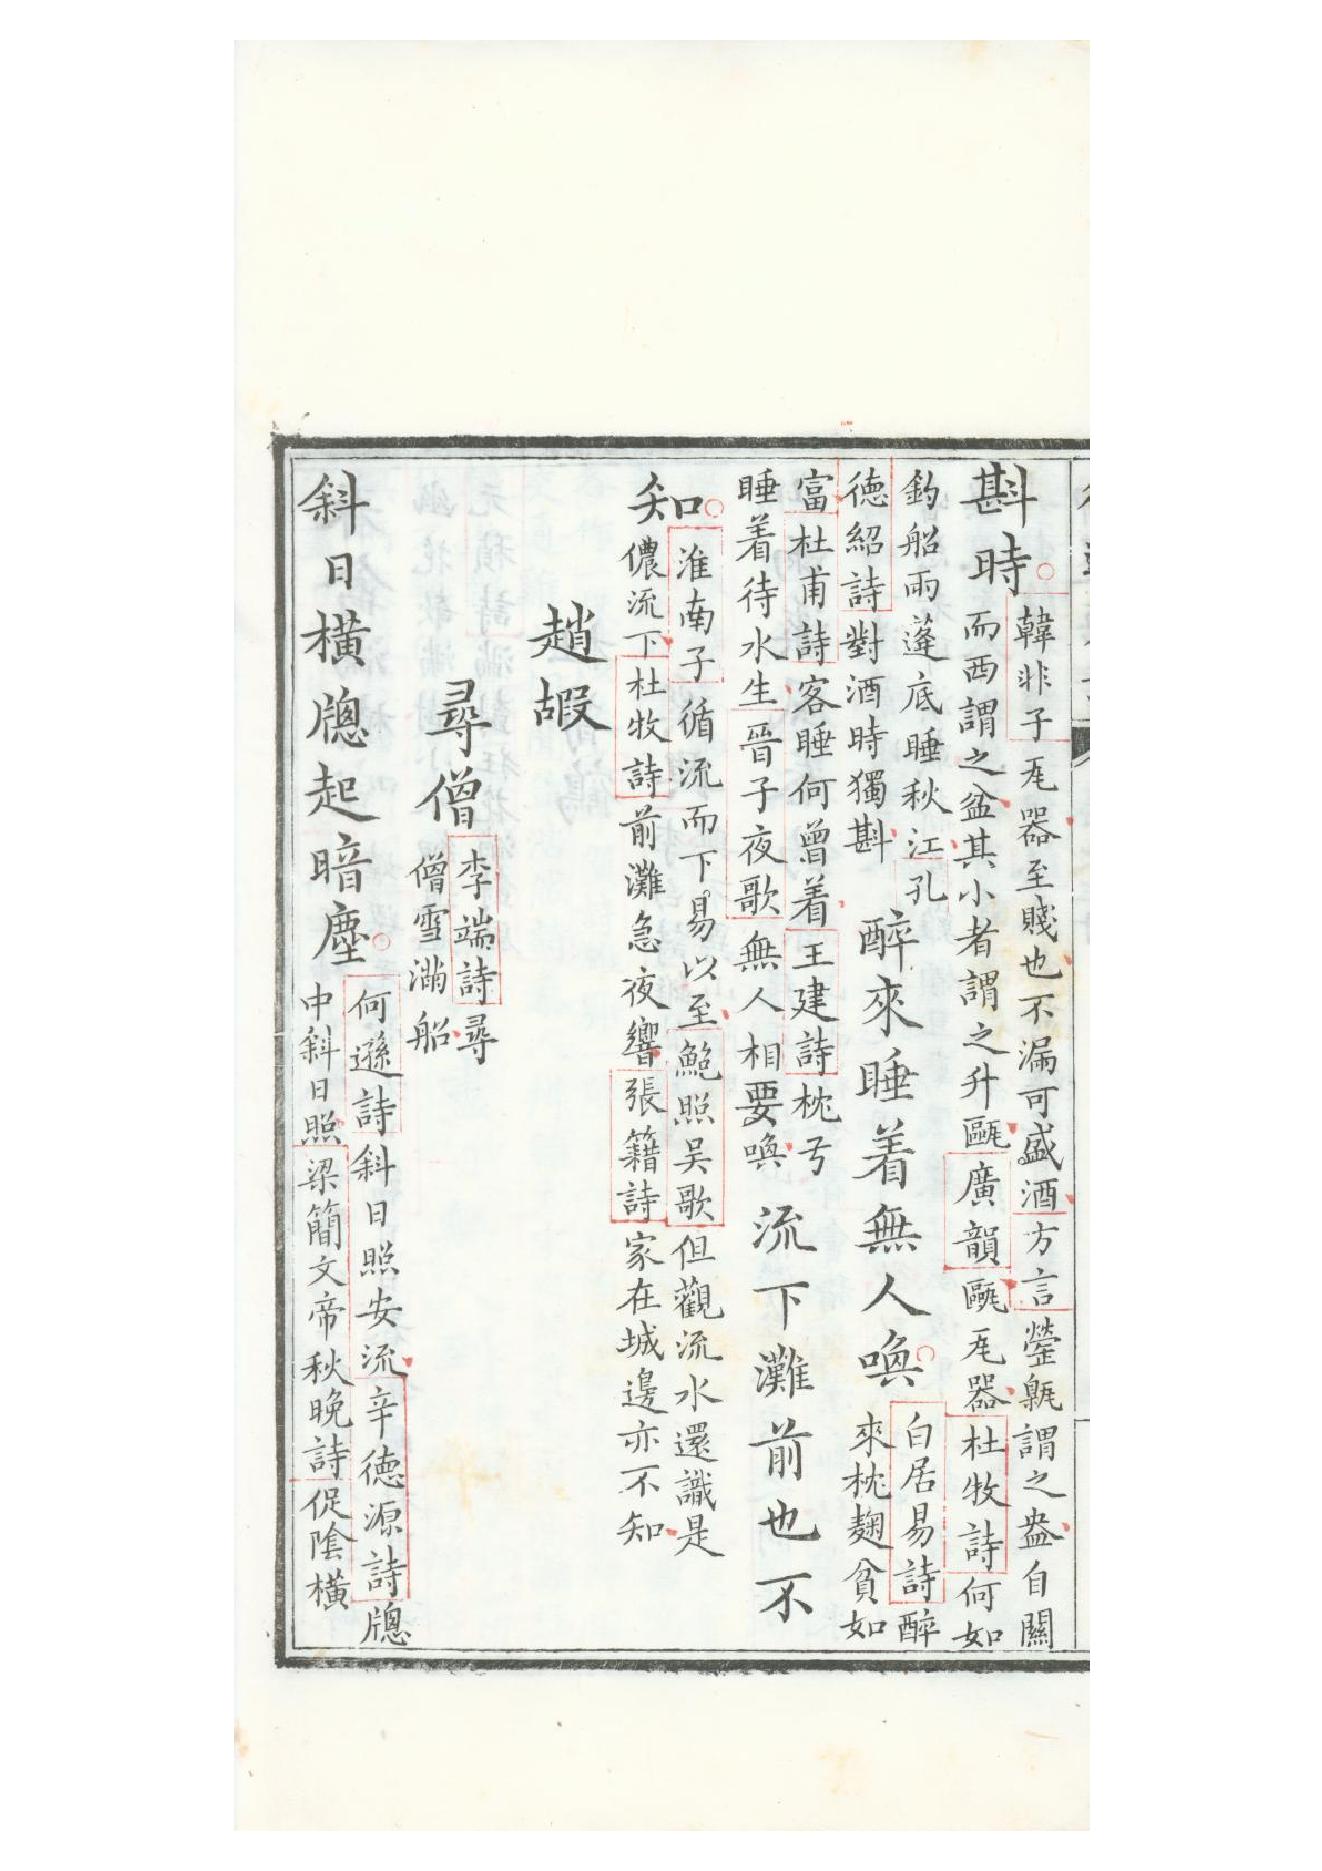 斟時
韓非子瓦器至賤也不漏可盛酒方言罃甈謂之盎自關
而西謂之盆其小者謂之升甌廣韻甌瓦器杜牧詩何如
釣船雨蓬底睡秋江孔
德紹詩對酒時獨斟
醉來睡着無人喚
白居易詩醉
來枕麴貧如
富杜甫詩客睡何曾着王建詩枕兮
睡着待水生晉子夜歌無人相要喚
流下灘前也不
知
淮南子循流而下易以至鮑照吴歌但觀流水還識是
儂流下杜牧詩前灘急夜響張籍詩家在城邊亦不知
趙嘏
尋僧
李端詩尋
僧雪滿船
斜日橫牕起暗塵
何遜詩斜日照安流辛德源詩牕
中斜日照梁簡文帝秋晚詩促陰橫